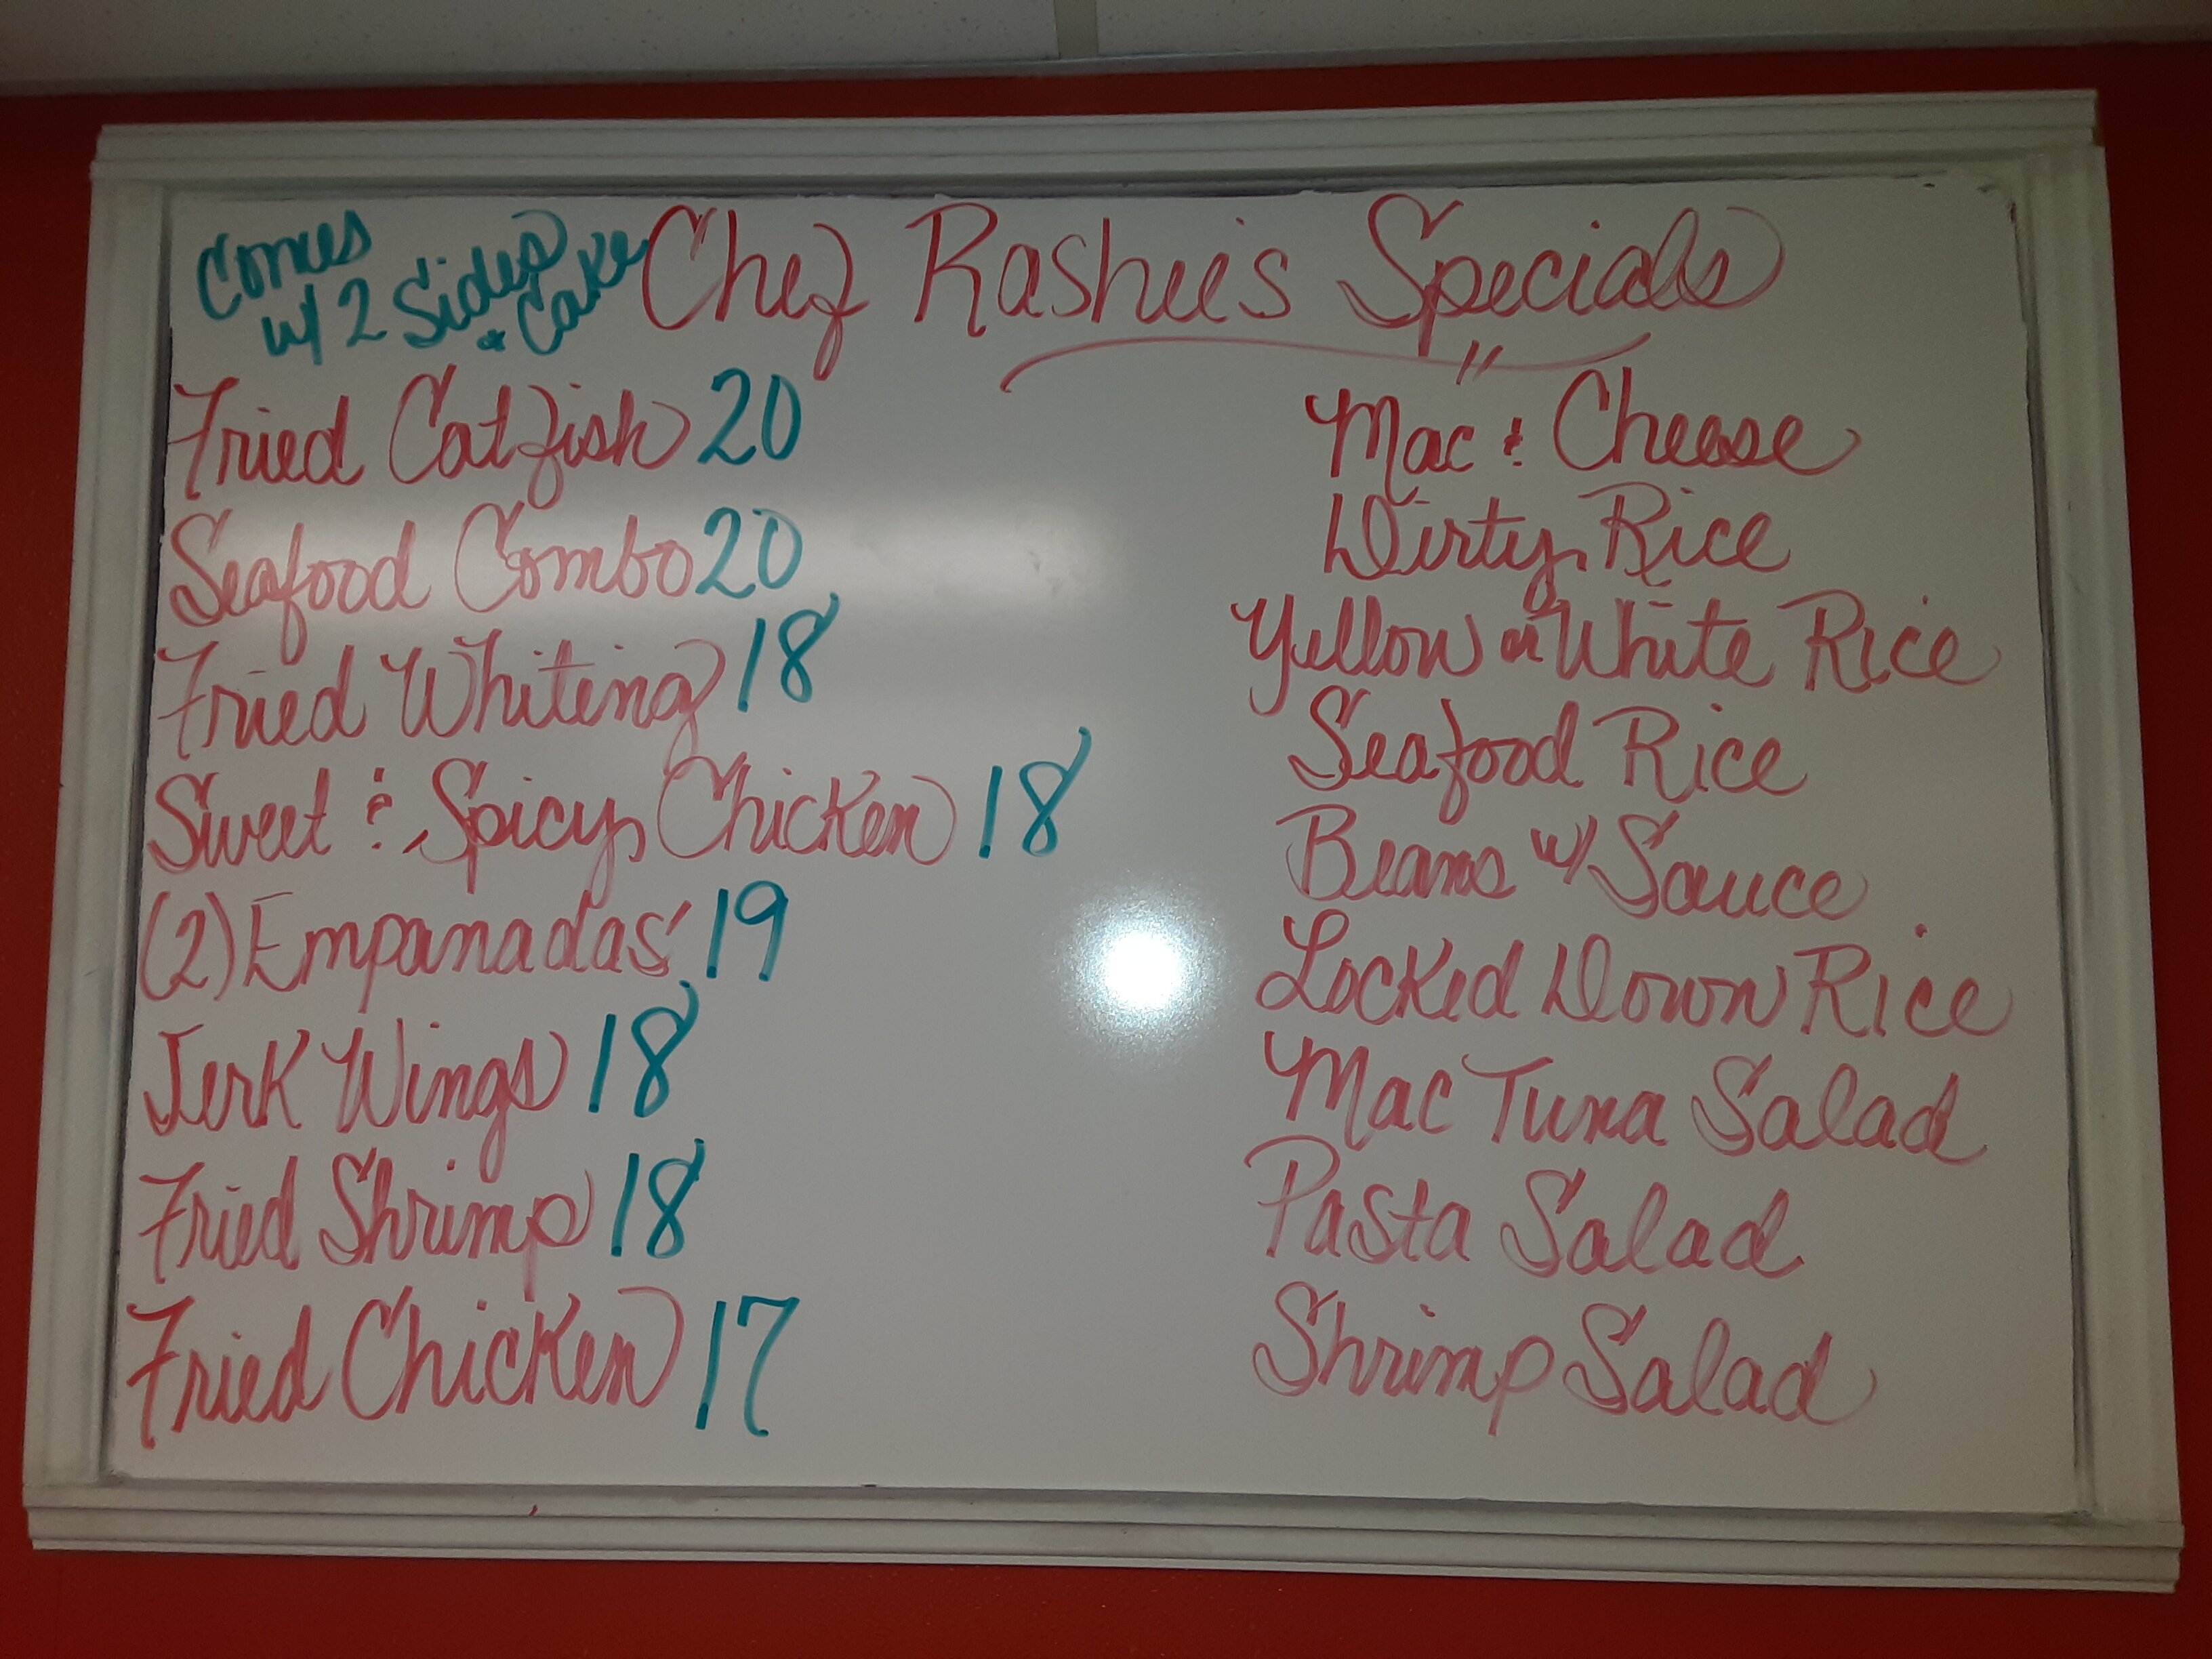 Comes
w/ 2 Sides
& Cake
Chef Rashie's Specials
Fried Catfish 20
Seafood Combo 20
Fried Whiting 18
Sweet & Spicy Chicken 18
(2) Empanadas' 19
Jerk Wings 18
Fried Shrimp 18
Fried Chicken 17
Mac & Cheese
Dirty Rice
Yellow or White Rice
Seafood Rice
Beans w/ Sauce
Locked Down Rice
Mac Tuna Salad
Pasta Salad
Shrimp Salad